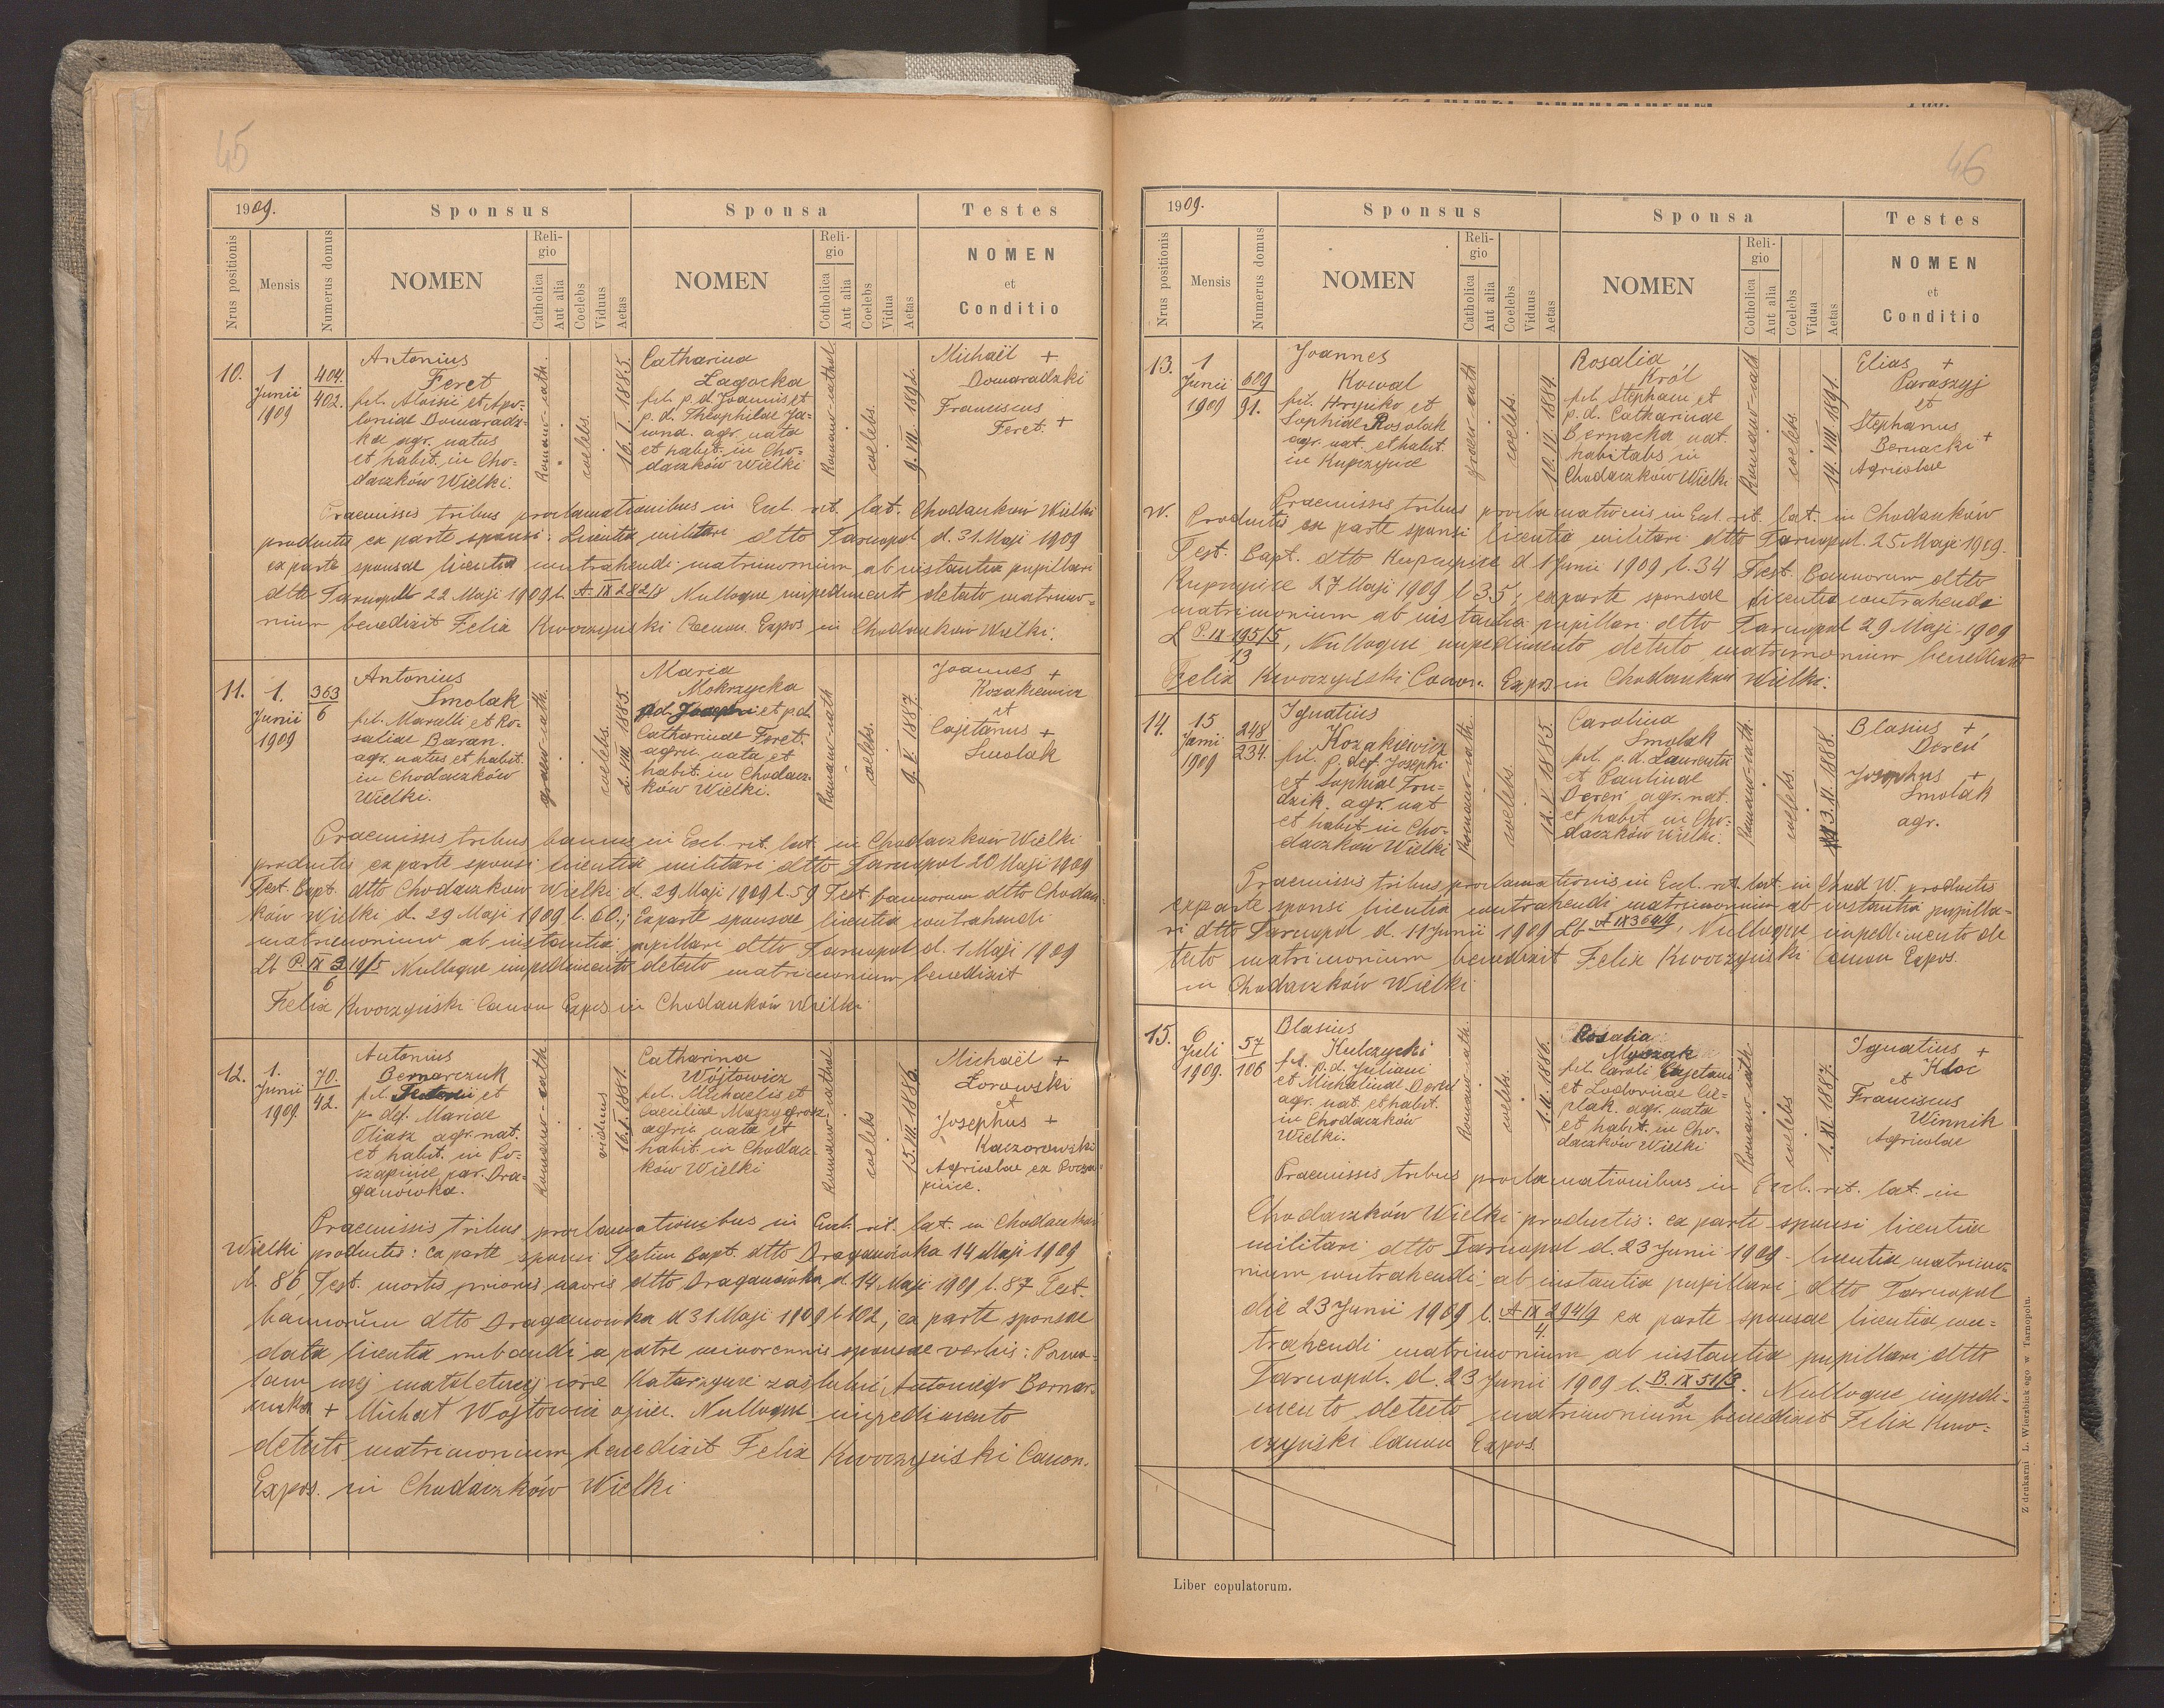 45
1909.
Sponsus
Sponsa
Testes
Nrus positionis
Mensis
Numerus domus
NOMEN
Religio
Catholica
Aut alia
Coelebs
Viduus
Aetas
NOMEN
Religio
Catholica
Aut alia
Coelebs
Vidua
Aetas
NOMEN
et
Conditio
10.
1
Junii
1909
404.
402.
Antonius
Feret
fil. Aloisii et Apo-
loniae Domaradz-
ka agr. natus
et habit. in Cho-
daczków Wielki.
Romano-cath.
coelebs.
16. I. 1885.
Catharina
Lagocka
fil. p.d. Joannis et
p.d. Theophilae Ja-
agr. nata
et habit. in Cho-
daczków Wielki
Romano-cathol.
coelebs.
9. VII. 1892.
Michaël +
Domaradzki
Franciscus
Feret. +
Praemissis tribus proclamationibus in Eccl. rit. lat. Chodaczków Wielki
productis ex parte sponsi: Licentia militari dtto Tarnopol d. 31 Maji 1909
ex parte sponsae licentia contrahendi matrimonium ab instantia pupillari
dtto Tarnopol 22 Maji 1909 L. A. IX 282/8 Nulloque impedimento detecto matrimo-
nium benedixit Felix Kwoczyński Canon. Expos in Chodaczków Wielki.
11.
1.
Junii
1909
363
6
Antonius
Smolak
fil. Marcelli et Ro-
saliae Baran.
agr. natus et habit.
in Chodaczków
Wielki.
graeco-cath.
coelebs.
2. VIII. 1885.
Maria
Mokrzycka
p.d. Josephi et p.d.
Catharinae Feret.
agric. nata et
habit. in Chodacz-
ków Wielki.
Romano-cath
coelebs.
9. V. 1887.
Joannes +
Kozakiewicz
et
Cajetanus +
Smolak
Praemissis tribus bannis in Eccl. rit. lat. in Chodaczków Wielki
productis ex parte sponsi licentia militari dtto Tarnopol 20 Maji 1909
Test. Bapt. dtto Chodaczków Wielki d. 29 Maji 1909 l. 59 Test. bannorum dtto Chodacz-
ków Wielki d. 29 Maji 1909 l. 60.; Ex parte sponsae licentia contrahendi
matrimonium ab instantia pupillari dtto Tarnopol d. 1 Maji 1909
Lb P. IX 319/5 Nulloque impedimento detecto matrimonium benedixit
6
Felix Kwoczyński Canon Expos in Chodaczków Wielki
12.
1.
Junii
1909.
70.
42.
Antonius
Bernarczuk
fil. et
p. def. Mariae
Oliasz agr. nat.
et habit. in Po-
czapińce par. Dra-
ganówka.
Romano-cath
viduus
16. I. 1881.
Catharina
Wójtowicz
fil. Michaelis et
Caeciliae
agric. nata et
habit. in Chodacz-
ków Wielki
Romano-cathol
coelebs
15. III. 1886.
Michaël +
Zorowski
et
Josephus +
Kaczorowski
Agricolae ex Pocza-
pince.
Praemissis tribus proclamationibus in Eccl. rit. lat. in Chodaczków
Wielki productis: ex parte sponsi Testim Bapt. dtto Draganówka 14 Maji 1909
l. 86, Test. mortis prioris uxoris dtto Draganówka d. 14 Maji 1909 l. 87 Test.
bannorum dtto Draganówka d 31 Maji 1909 l. 102; ex parte sponsae
data licentia nubendi a patre minorennis sponsae verbis: Pozwa-
lam mej małoletniej córce Katarzynie zaślubić Antoniego Bernar-
czuka + Michał Wojtowicz ojciec. Nulloque impedimento
detecto matrimonium benedixit Felix Kwoczyński Canon.
Expos. in Chodaczków Wielki
46
1909.
Sponsus
Sponsa
Testes
Nrus positionis
Mensis
Numerus domus
NOMEN
Religio
Catholica
Aut alia
Coelebs
Viduus
Aetas
NOMEN
Religio
Catholica
Aut alia
Coelebs
Vidua
Aetas
NOMEN
et
Conditio
13.
1
Junii
1909
609
91.
Joannes
Kowal
fil. Hryńko et
Sophiae Rosolak
agr. nat. et habit.
in Kupczyńce
graeco-cath
coelebs.
10. VI. 1884.
Rosalia
Król
fil. Stephani et
p.d. Catharinae
Bernacka nat.
habitabs in
Chodaczków Wielki
Romano-cath
coelebs.
14. VIII. 1891.
Elias +
Paraszyj
et
Stephanus
Bernacki +
Agricolae
Praemissis tribus proclamationis in Eccl. rit. lat. in Chodaczków
W. Productis ex parte sponsi licentia militari dtto Tarnopol. 25 Maji 1909.
Test. Bapt. dtto Kupczyńce d 1 Junii 1909, l. 34 Test. Bannorum dtto
Kupczyńce 27 Maji 1909 l 35; ex parte sponsae licentia contrahendi
matrimonium ab instantia pupillari dtto Tarnopol 29 Maji 1909
L P. IX 195/5, Nulloque impedimento detecto matrimonium benedixit
13
Felix Kwoczyński Canon. Expos in Chodaczków Wielki.
14.
15
Junii
1909
248
234.
Ignatius
Kozakiewicz
fil. p. def. Josephi
et Sophiae Fru-
dzik. agr. nat
et habit in Cho-
daczków Wielki
Romano-cath.
coelebs.
12. V. 1885.
Carolina
Smolak
fil. p.d. Laurentii
et Paulinae
Dereń agr. nat.
et habit in Cho-
daczków Wielki.
Romano-cath.
coelebs.
3. XI. 1888.
Blasius +
Dereń
Josephus +
Smolak
agr.
Praemissis tribus proclamationis in Eccl. rit. lat. in Chod W. productis
ex parte sponsi licentia contrahendi matrimonium ab instantia pupilla-
ri dtto Tarnopol d. 11 Junii 1909 Lb A IX 364/9, Nulloque impedimento de
tecto matrimonium benedixit Felix Kwoczyński Canon Expos.
in Chodaczków Wielki
15.
6
Juli
1909.
57
106
Blasius
Kulczycki
fil. p.d. Juliani
et Michalinae Dereń
agr. nat. et habit.
in Chodaczków
Wielki.
Romano-cath.
coelebs.
1. II. 1886.
Rosalia
Myszak
fil. Caroli Cajetani
et Ludovicae Cie-
plak. agr. nata
et habit. in Cho-
daczków Wielki
Romano-cath.
coelebs
1. XI. 1887.
Ignatius +
Kloc
et
Franciscus
Winnik
Agricolae
Praemissis tribus proclamationibus in Eccl. rit. lat. in
Chodaczków Wielki productis: ex parte sponsi licentia
militari dtto Tarnopol d. 23 Junii 1909 - licentia matrimo-
nium contrahendi ab instantia pupillari dtto Tarnopol
die 23 Junii 1909 l. A IX 294/9 ex parte sponsae licentia con-
4.
trahendi matrimonium ab instantia pupillari dtto
Tarnopol. d. 23 Junii 1909 l. B. IX 51/3. Nulloque impedi-
2
mento detecto matrimonium benedixit Felix Kwo-
czyński Canon Expos.
Liber copulatorum.
Z drukarni L. Wierzbickiego w Tarnopolu.